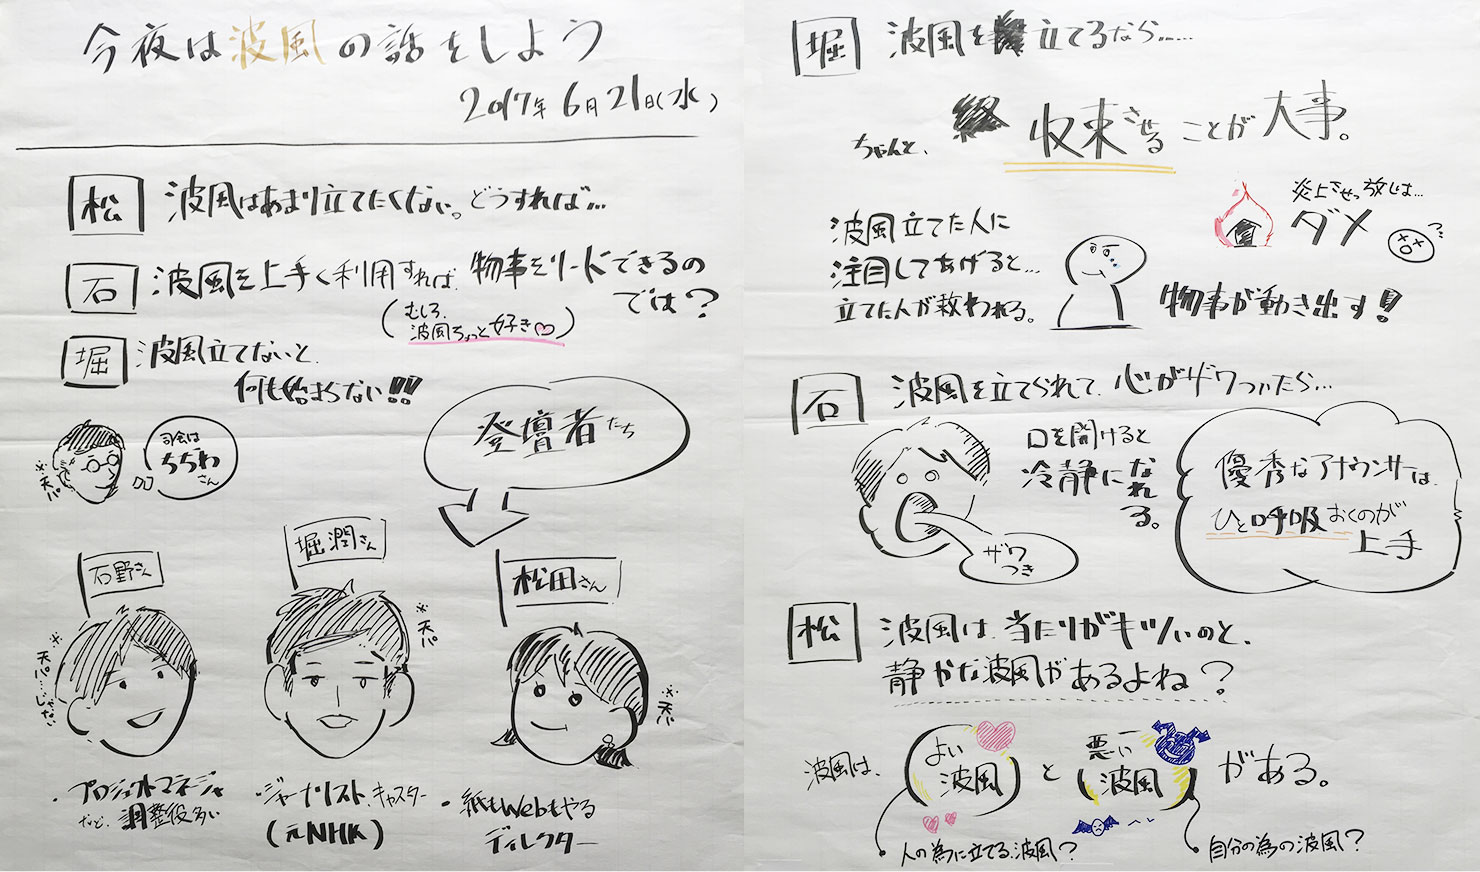 今夜は波風の話をしよう
2017年6月21日(水)
松 波風はあまり立てたくない。どうすれば…
石 波風を上手く利用すれば、物事をリードできるの
では?
(むしろ、
波風ちょっと好き)
堀 波風立てないと、
何も始まらない!!
司会は
ちぢわ
さん
※天パ
登壇者たち
石野さん
※天パ…じゃない
・プロジェクトマネージャ
など、調整役多い
堀潤さん
※天パ
・ジャーナリスト、キャスター
(元NHK)
松田さん
※天パ
・紙もWebもやる
ディレクター
堀 波風を立てるなら……
ちゃんと、収束させることが大事。
炎上させっ放しは…
ダメ
波風立てた人に
注目してあげると…
立てた人が救われる。
物事が動き出す!
石 波風を立てられて、心がザワついたら…
口を開けると
冷静になれる。
ザワ
つき
優秀なアナウンサーは、
ひと呼吸おくのが
上手
松 波風は、当たりがキツいのと、
静かな波風があるよね?
波風は、よい波風と悪い波風がある。
人の為に立てる波風?
自分の為の波風?